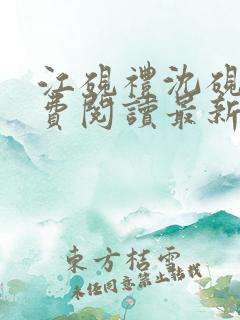 江硯禮沈硯
費閱讀最新
東方桔雲
未經同意禁止轉載